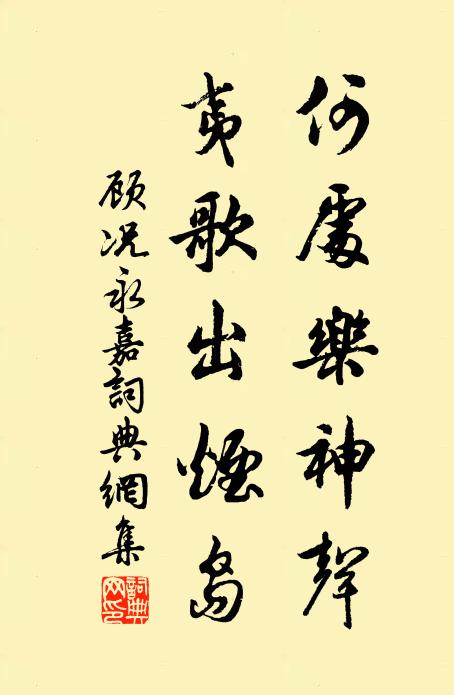 何處樂神聲
夷歌出煙島
顧況永嘉詞典網集
詞典網印